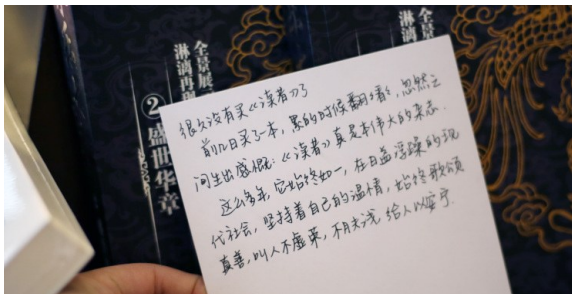 全景展
淋漓再现
② 盛世华章
很久没有买《读者》了
前几日买了一本，累的时候翻看看，忽然之
间生出感慨：《读者》真是本伟大的杂志.
这么多年，它始终如一，在日益浮躁的现
代社会，坚持着自己的温情，始终歌颂
真善，叫人不虚荣，不肤浅，给人以坚守.